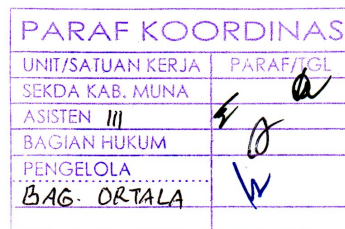 PARAF KOORDINAS
UNIT/SATUAN KERJA PARAF/TGL
SEKDA KAB. MUNA
ASISTEN III
BAGIAN HUKUM
PENGELOLA
BAG. ORTALA